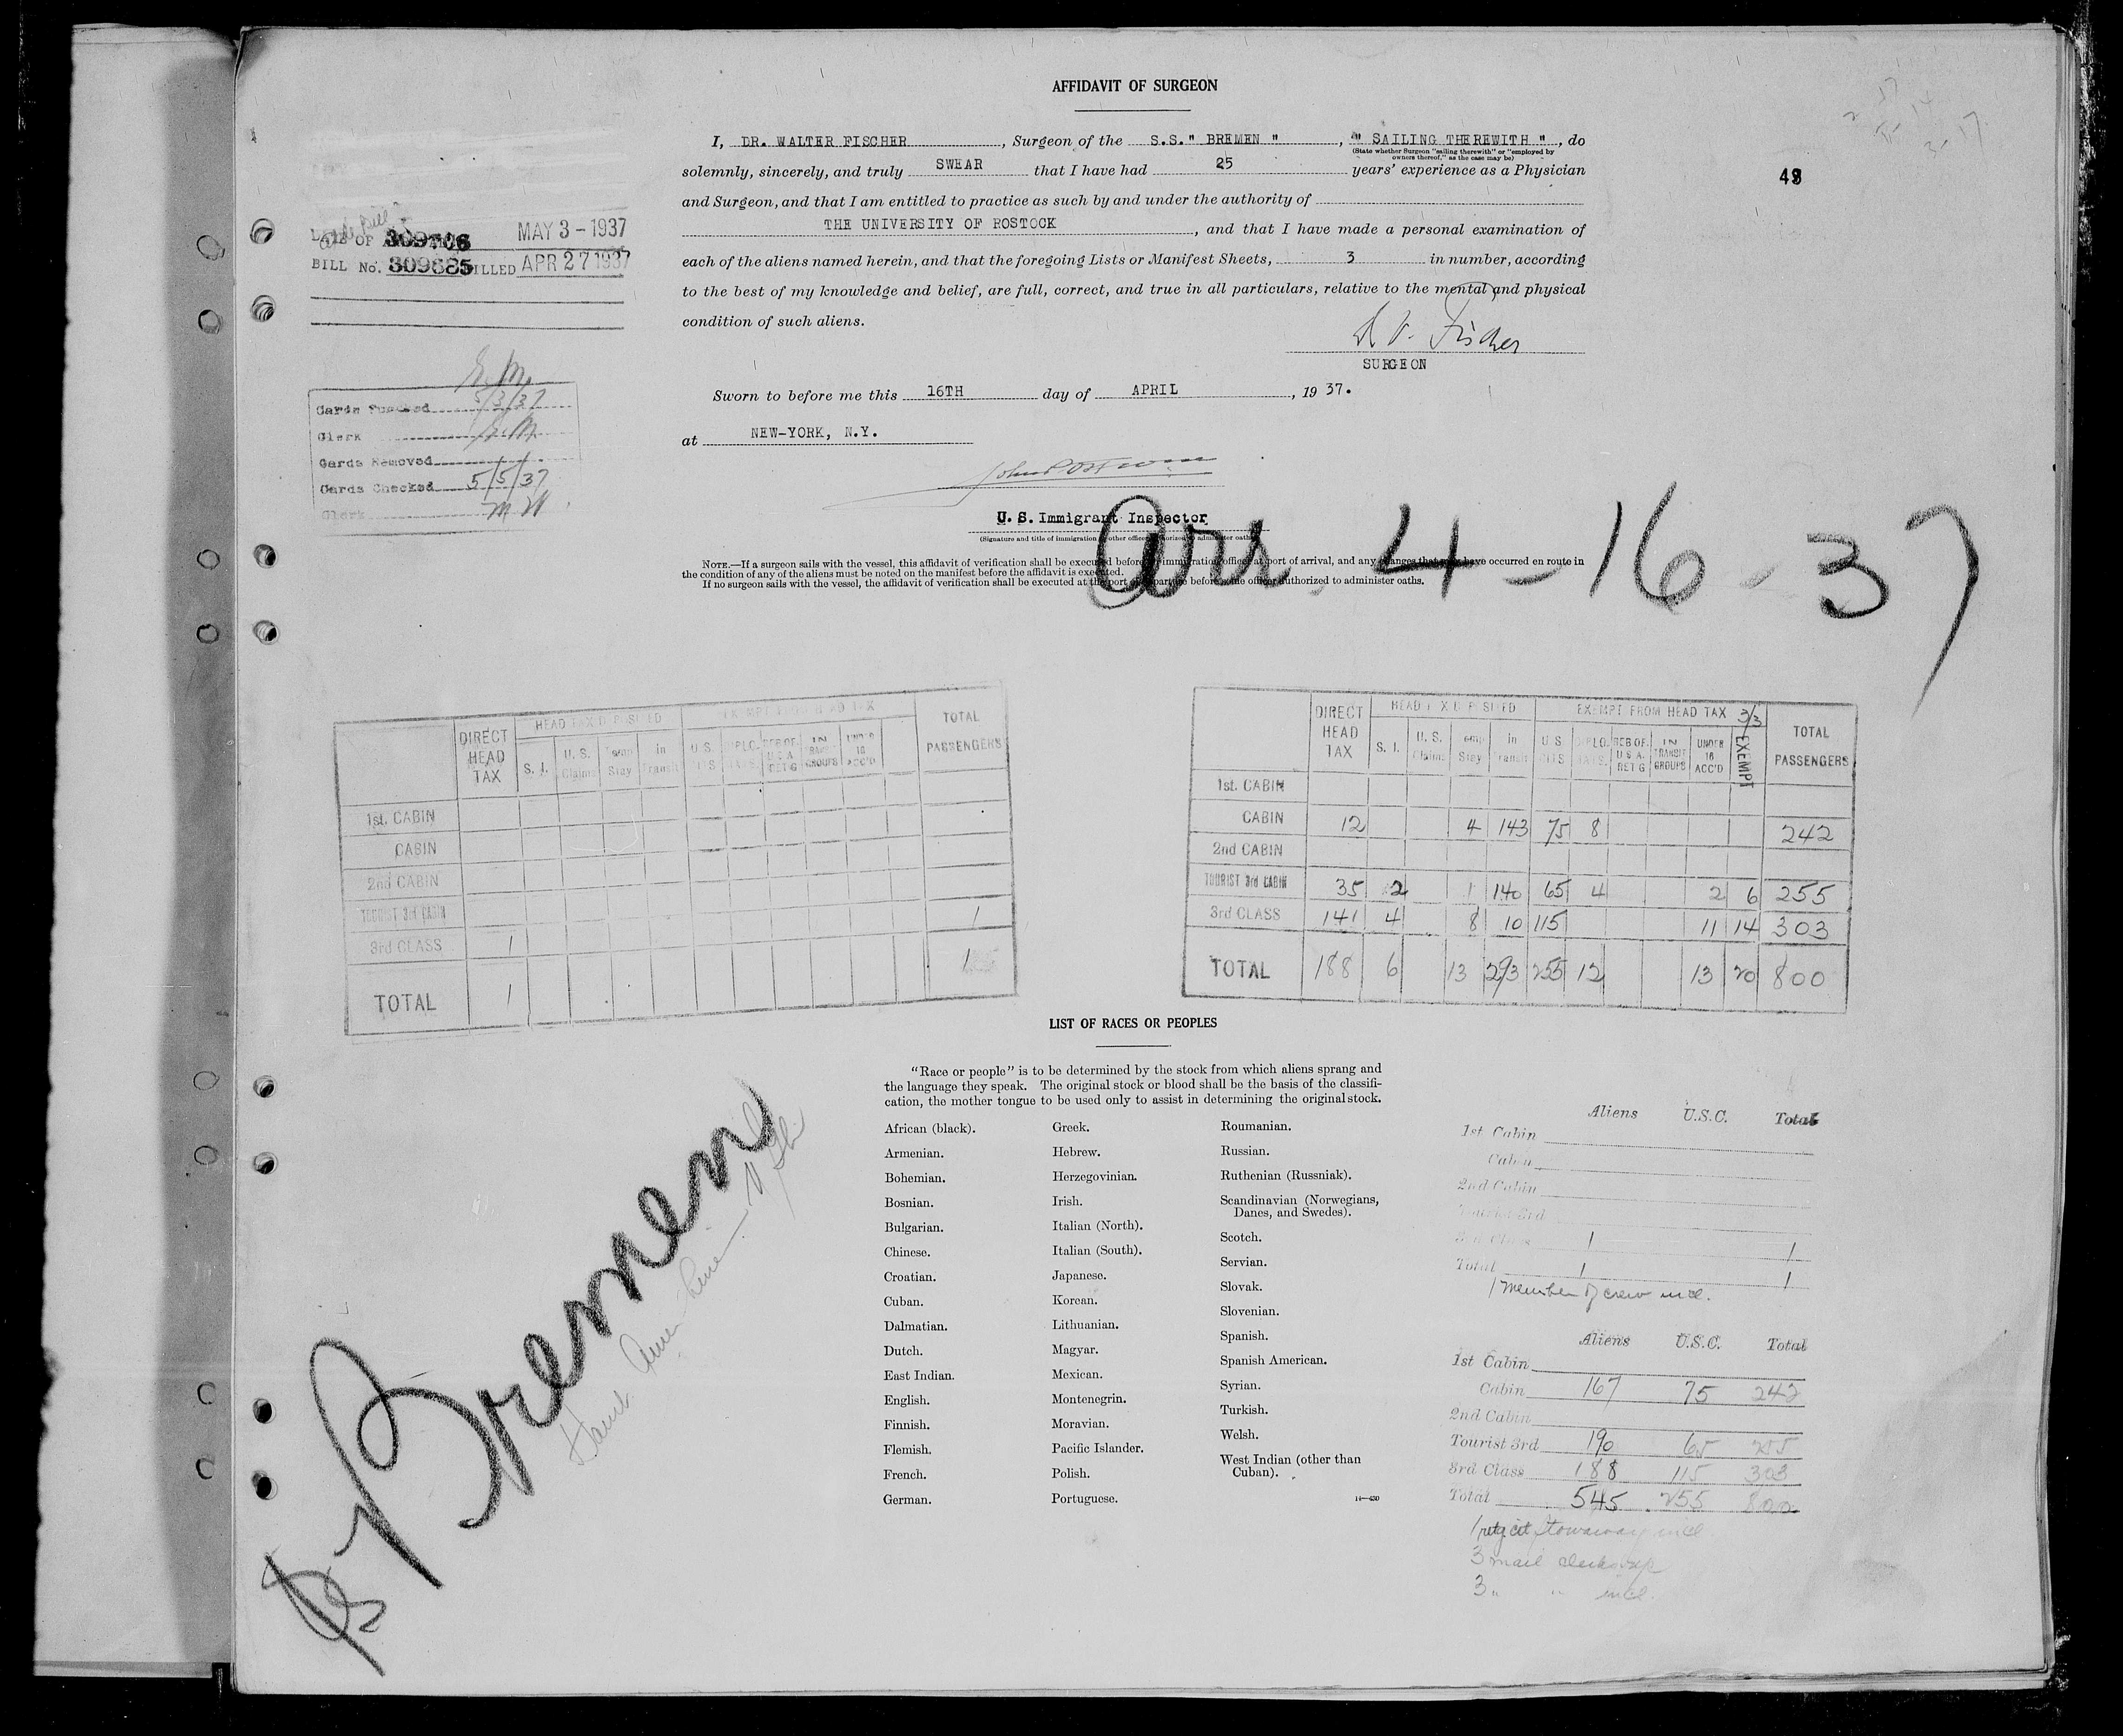 AFFIDAVIT OF SURGEON
I, DR. WALTER FISCHER, Surgeon of the S.S." BREMEN ", " SAILING THEREWITH ", do
(State whether Surgeon "sailing therewith" or "employed by
owners thereof," as the case may be)
solemnly, sincerely, and truly SWEAR that I have had 25 years' experience as a Physician
and Surgeon, and that I am entitled to practice as such by and under the authority of
THE UNIVERSITY OF ROSTOCK, and that I have made a personal examination of
each of the aliens named herein, and that the foregoing Lists or Manifest Sheets, 3 in number, according
to the best of my knowledge and belief, are full, correct, and true in all particulars, relative to the mental and physical
condition of such aliens.
Fischer
SURGEON
Sworn to before me this 16TH day of APRIL, 19 37.
at NEW-YORK, N.Y.
U. S. Immigrant Inspector
NOTE.—If a surgeon sails with the vessel, this affidavit of verification shall be executed before immigration officer at port of arrival, and any changes that may have occurred en route in
the condition of any of the aliens must be noted on the manifest before the affidavit is executed.
If no surgeon sails with the vessel, the affidavit of verification shall be executed at the port of departure before the officer authorized to administer oaths.
Arr. 4-16-37
MAY 3-1937
BILL No. 309685 FILLED APR 27 1937
Cards Punched 5/3/37
Clerk
Cards Removed
Cards Checked 5/5/37
Clerk
DIRECT HEAD TAX
TOTAL PASSENGERS
1st. CABIN
CABIN
2nd CABIN
TOURIST 3rd CABIN
3rd CLASS 1 1
TOTAL 1 1
DIRECT HEAD TAX S. I. U. S. Claims Temp Stay in Transit EXEMPT FROM HEAD TAX 3/3 TOTAL PASSENGERS
U S CITS DIPLO. RES OF. U S A. RET G IN TRANSIT GROUPS UNDER 16 ACC'D EXEMPT
1st. CABIN
CABIN 12 4 143 75 8 242
2nd CABIN
TOURIST 3rd CABIN 35 2 1 140 65 4 2 6 255
3rd CLASS 141 4 8 10 115 11 14 303
TOTAL 188 6 13 293 255 12 13 20 800
LIST OF RACES OR PEOPLES
"Race or people" is to be determined by the stock from which aliens sprang and
the language they speak. The original stock or blood shall be the basis of the classifi-
cation, the mother tongue to be used only to assist in determining the original stock.
African (black).
Armenian.
Bohemian.
Bosnian.
Bulgarian.
Chinese.
Croatian.
Cuban.
Dalmatian.
Dutch.
East Indian.
English.
Finnish.
Flemish.
French.
German.
Greek.
Hebrew.
Herzegovinian.
Irish.
Italian (North).
Italian (South).
Japanese.
Korean.
Lithuanian.
Magyar.
Mexican.
Montenegrin.
Moravian.
Pacific Islander.
Polish.
Portuguese.
Roumanian.
Russian.
Ruthenian (Russniak).
Scandinavian (Norwegians,
Danes, and Swedes).
Scotch.
Servian.
Slovak.
Slovenian.
Spanish.
Spanish American.
Syrian.
Turkish.
Welsh.
West Indian (other than
Cuban).
Aliens U.S.C. Total
1st Cabin
Cabin
2nd Cabin
Tourist 3rd
3rd Class 1 1
Total 1 1
1 member of crew incl.
Aliens U.S.C. Total
1st Cabin
Cabin 167 75 242
2nd Cabin
Tourist 3rd 190 65 255
3rd Class 188 115 303
Total 545 255 800
1 retg. cit stowaway incl
3 mail clerks
3 " " incl.
SS Bremen